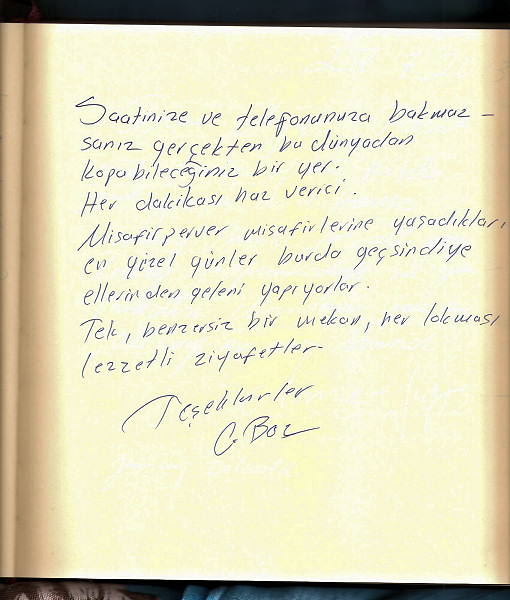 Saatinize ve telefonunuza bakmaz-
sanız gerçekten bu dünyadan
kopabileceğiniz bir yer.
Her dakikası haz verici.
Misafirperver misafirlerine yaşadıkları
en güzel günler burda geçsindiye
ellerinden geleni yapıyorlar.
Tek, benzersiz bir mekan, her lokması
lezzetli ziyafetler-
Teşekkürler
C. Boz